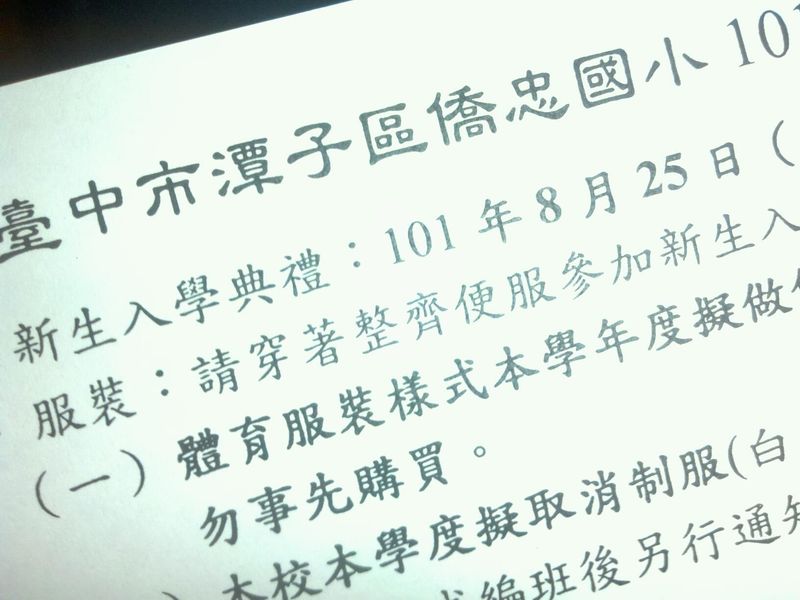 臺中市潭子區僑忠國小 101
新生入學典禮：101 年 8 月 25 日（
服裝：請穿著整齊便服參加新生入
（一）體育服裝樣式本學年度擬做
勿事先購買。
）本校本學度擬取消制服(白
編班後另行通知